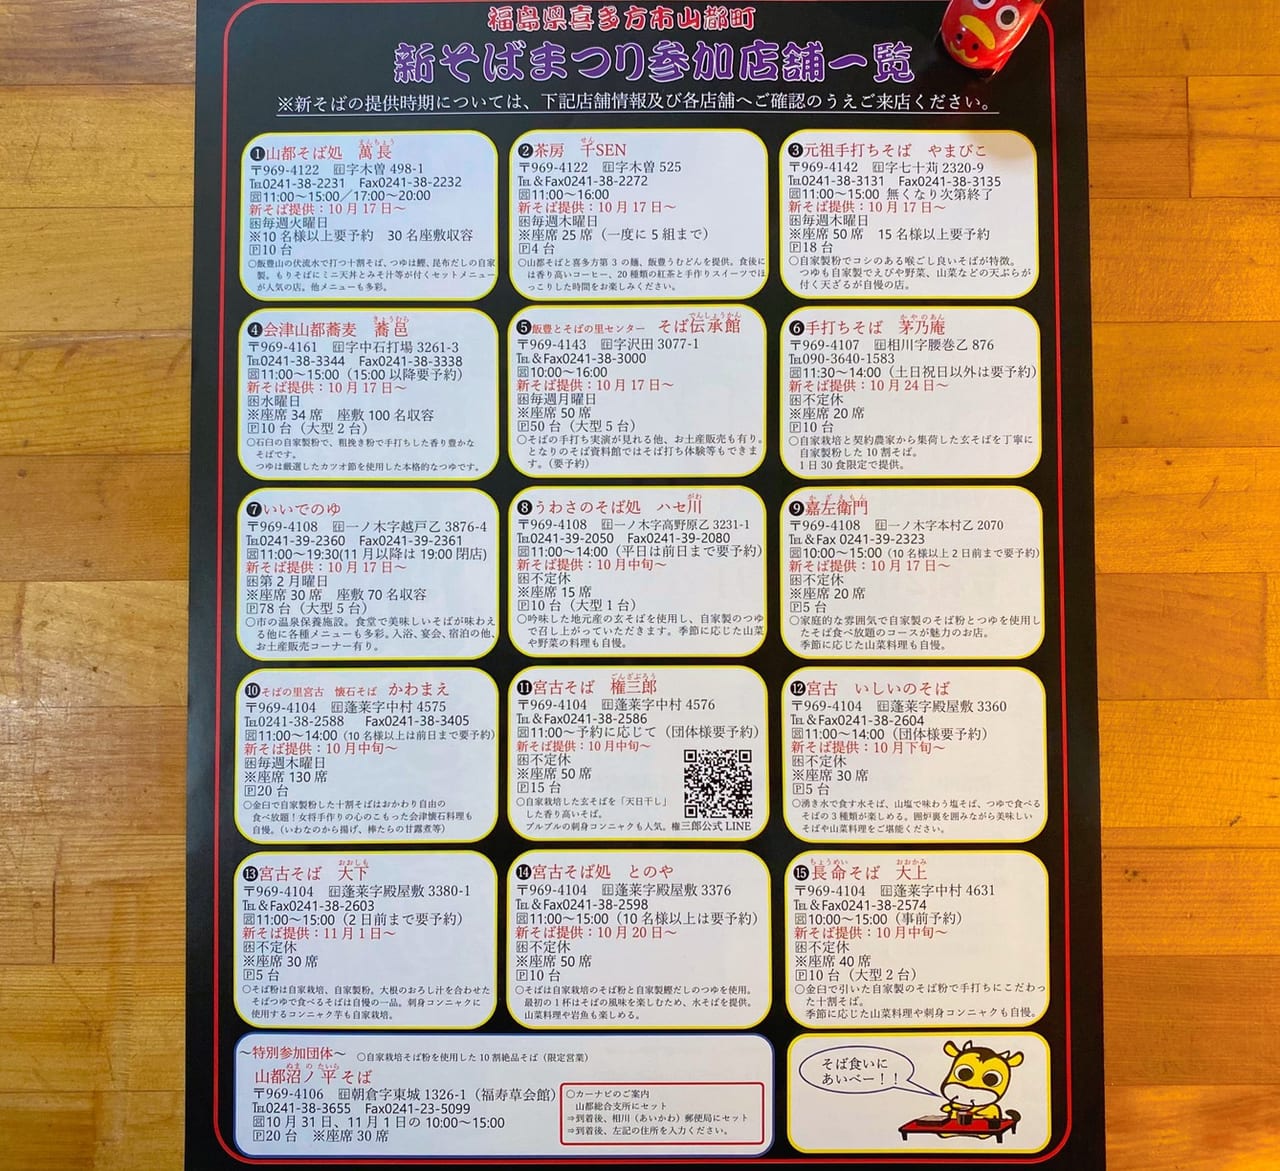 福島県喜多方市山都町
新そばまつり参加店舗一覧
※新そばの提供時期については、下記店舗情報及び各店舗へご確認のうえご来店ください。
❶山都そば処 萬長
まんちょう
〒969-4122 住字木曽 498-1
TEL0241-38-2231 Fax0241-38-2232
営11:00～15:00／17:00～20:00
新そば提供：10月17日～
休毎週火曜日
※10名様以上要予約 30名座敷収容
P10台
○飯豊山の伏流水で打つ十割そば、つゆは鰹、昆布だしの自家
製。もりそばにミニ天丼とみそ汁等が付くセットメニュー
が人気の店。他メニューも多彩。
❷茶房 千SEN
せん
〒969-4122 住字木曽 525
TEL＆Fax0241-38-2272
営11:00～16:00
新そば提供：10月17日～
休毎週木曜日
※座席25席（一度に5組まで）
P4台
○山都そばと喜多方第3の麺、飯豊うむどんを提供。食後に
は香り高いコーヒー、20種類の紅茶と手作りスイーツでほ
っこりした時間をお楽しみください。
❸元祖手打ちそば やまびこ
〒969-4142 住字七十苅 2320-9
TEL0241-38-3131 Fax0241-38-3135
営11:00～15:00 無くなり次第終了
新そば提供：10月17日～
休毎週木曜日
※座席50席 15名様以上要予約
P18台
○自家製粉でコシのある喉ごし良いそばが特徴。
つゆも自家製でえびや野菜、山菜などの天ぷらが
付く天ざるが自慢の店。
❹会津山都蕎麦 蕎邑
きょうむら
〒969-4161 住字中石打場 3261-3
TEL0241-38-3344 Fax0241-38-3338
営11:00～15:00（15:00以降要予約）
新そば提供：10月17日～
休水曜日
※座席34席 座敷100名収容
P10台（大型2台）
○石臼の自家製粉で、粗挽き粉で手打ちした香り豊かな
そばです。
つゆは厳選したカツオ節を使用した本格的なつゆです。
❺飯豊とそばの里センター そば伝承館
でんしょうかん
〒969-4143 住字沢田 3077-1
TEL＆Fax0241-38-3000
営10:00～16:00
新そば提供：10月17日～
休毎週月曜日
※座席50席
P50台（大型5台）
○そばの手打ち実演が見れる他、お土産販売も有り。
となりのそば資料館ではそば打ち体験等もできま
す。（要予約）
❻手打ちそば 茅乃庵
かやのあん
〒969-4107 住相川字腰巻乙 876
TEL090-3640-1583
営11:30～14:00（土日祝日以外は要予約）
新そば提供：10月24日～
休不定休
※座席20席
P10台
○自家栽培と契約農家から集荷した玄そばを丁寧に
自家製粉した10割そば。
1日30食限定で提供。
❼いいでのゆ
〒969-4108 住一ノ木字越戸乙 3876-4
TEL0241-39-2360 Fax0241-39-2361
営11:00～19:30(11月以降は19:00閉店)
新そば提供：10月17日～
休第2月曜日
※座席30席 座敷70名収容
P78台（大型5台）
○市の温泉保養施設。食堂で美味しいそばが味わえ
る他に各種メニューも多彩。入浴、宴会、宿泊の他、
お土産販売コーナー有り。
❽うわさのそば処 ハセ川
がわ
〒969-4108 住一ノ木字高野原乙 3231-1
TEL0241-39-2050 Fax0241-39-2080
営11:00～14:00（平日は前日まで要予約）
新そば提供：10月中旬～
休不定休
※座席15席
P10台（大型1台）
○吟味した地元産の玄そばを使用し、自家製のつゆ
で召し上がっていただきます。季節に応じた山菜
や野菜の料理も自慢。
❾嘉左衛門
かざえもん
〒969-4108 住一ノ木字本村乙 2070
TEL＆Fax 0241-39-2323
営10:00～15:00（10名様以上2日前まで要予約）
新そば提供：10月17日～
休不定休
※座席20席
P5台
○家庭的な雰囲気で自家製のそば粉とつゆを使用し
たそば食べ放題のコースが魅力のお店。
季節に応じた山菜料理も自慢。
❿そばの里宮古 懐石そば かわまえ
〒969-4104 住蓬莱字中村 4575
TEL0241-38-2588 Fax0241-38-3405
営11:00～14:00（10名様以上は前日まで要予約）
新そば提供：10月中旬～
休毎週木曜日
※座席130席
P20台
○金臼で自家製粉した十割そばはおかわり自由の
食べ放題！女将手作りの心のこもった会津懐石料理も
自慢。（いわなのから揚げ、棒たらの甘露煮等）
⓫宮古そば 権三郎
ごんざぶろう
〒969-4104 住蓬莱字中村 4576
TEL＆Fax0241-38-2586
営11:00～予約に応じて（団体様要予約）
新そば提供：10月中旬～
休不定休
※座席50席
P15台
○自家栽培した玄そばを「天日干し」
した香り高いそば。
プルプルの刺身コンニャクも人気。権三郎公式LINE
⓬宮古 いしいのそば
〒969-4104 住蓬莱字殿屋敷 3360
TEL＆Fax0241-38-2604
営11:00～14:00（団体様要予約）
新そば提供：10月下旬～
休不定休
※座席30席
P5台
○湧き水で食す水そば、山塩で味わう塩そば、つゆで食べる
そばの3種類が楽しめる。囲炉裏を囲みながら美味しい
そばや山菜料理をご堪能ください。
⓭宮古そば 大下
おおしも
〒969-4104 住蓬莱字殿屋敷 3380-1
TEL＆Fax0241-38-2603
営11:00～15:00（2日前まで要予約）
新そば提供：11月1日～
休不定休
※座席30席
P5台
○そば粉は自家栽培、自家製粉。大根のおろし汁を合わせた
そばつゆで食べるそばは自慢の一品。刺身コンニャクに
使用するコンニャク芋も自家栽培。
⓮宮古そば処 とのや
〒969-4104 住蓬莱字殿屋敷 3376
TEL＆Fax0241-38-2598
営11:00～15:00（10名様以上は要予約）
新そば提供：10月20日～
休不定休
※座席50席
P10台
○そばは自家栽培のそば粉と自家製鰹だしのつゆを使用。
最初の1杯はそばの風味を楽しむため、水そばを提供。
山菜料理や岩魚も楽しめる。
⓯長命そば 大上
ちょうめい おおかみ
〒969-4104 住蓬莱字中村 4631
TEL＆Fax0241-38-2574
営10:00～15:00（事前予約）
新そば提供：10月中旬～
休不定休
※座席40席
P10台（大型2台）
○金臼で引いた自家製のそば粉で手打ちにこだわっ
た十割そば。
季節に応じた山菜料理や刺身コンニャクも自慢。
～特別参加団体～ ○自家栽培そば粉を使用した10割絶品そば（限定営業）
山都沼ノ平そば
ぬまのたいら
〒969-4106 住朝倉字東城 1326-1（福寿草会館）
TEL0241-38-3655 Fax0241-23-5099
営10月31日、11月1日の10:00～15:00
P20台 ※座席30席
○カーナビのご案内
山都総合支所にセット
⇒到着後、相川（あいかわ）郵便局にセット
⇒到着後、左記の住所を入力ください。
そば食いに
あいべー！！